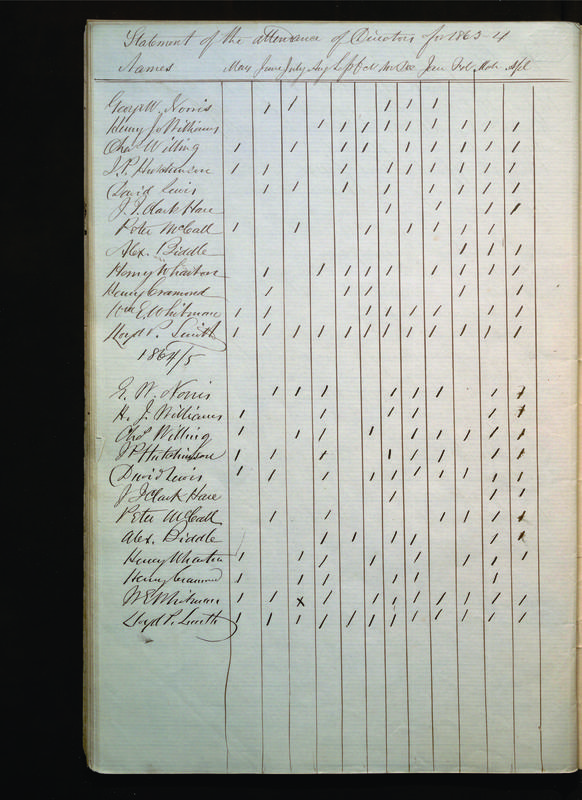 Statement of the attendance of Directors for 1863-4
Names May June July Aug Sept Oct Nov Dec Jan Feb Mch Apl
Geo. W. Norris / / / / /
Henry J. Williams / / / / / / / / /
Chas. Willing / / / / / / / / /
J. P. Hutchinson / / / / / / / / / /
David Lewis / / / / / / / /
J. I. Clark Hare / / / /
Peter McCall / / / / / / /
Alex. Biddle / / /
Henry Wharton / / / / / / / / /
Henry Cramond / / / / /
Wm E. Whitman / / / / / / / /
Lloyd P. Smith / / / / / / / / / / / /
1864/5
G. W. Norris / / / / / / / /
H. J. Williams / / / / / /
Chas. Willing / / / / / / / / /
J P Hutchinson / / / / / / / /
David Lewis / / / / / / / / / /
J I Clark Hare / / /
Peter McCall / / / / / /
Alex. Biddle / / / / / /
Henry Wharton / / / / / / / /
Henry Cramond / / / / / /
W E Whitman / / x / / / / / / / /
Lloyd P. Smith / / / / / / / / / / / /